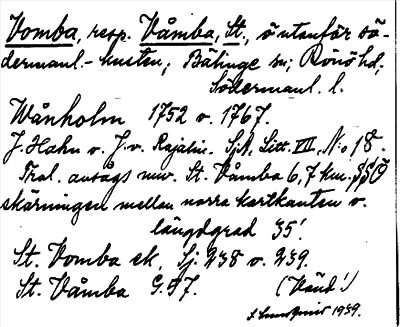 Vomba, resp. Våmba, St., ö utanför sö-
dermanl.-kusten; Bälinge sn; Rönö hd;
Södermanl. l.
Wånholm 1752 o. 1767.
J. Hahn o. J. v. Rajalin. Sjk. Litt. VII, No 18.
Trol. avsågs nuv. St. Våmba 6,7 km. SSÖ
skärningen mellan norra kartkanten o.
längdgrad 35'.
St. Vomba ek. Sj: 238 o. 239.
St. Våmba G. 97.
(Vänd!)
1939.